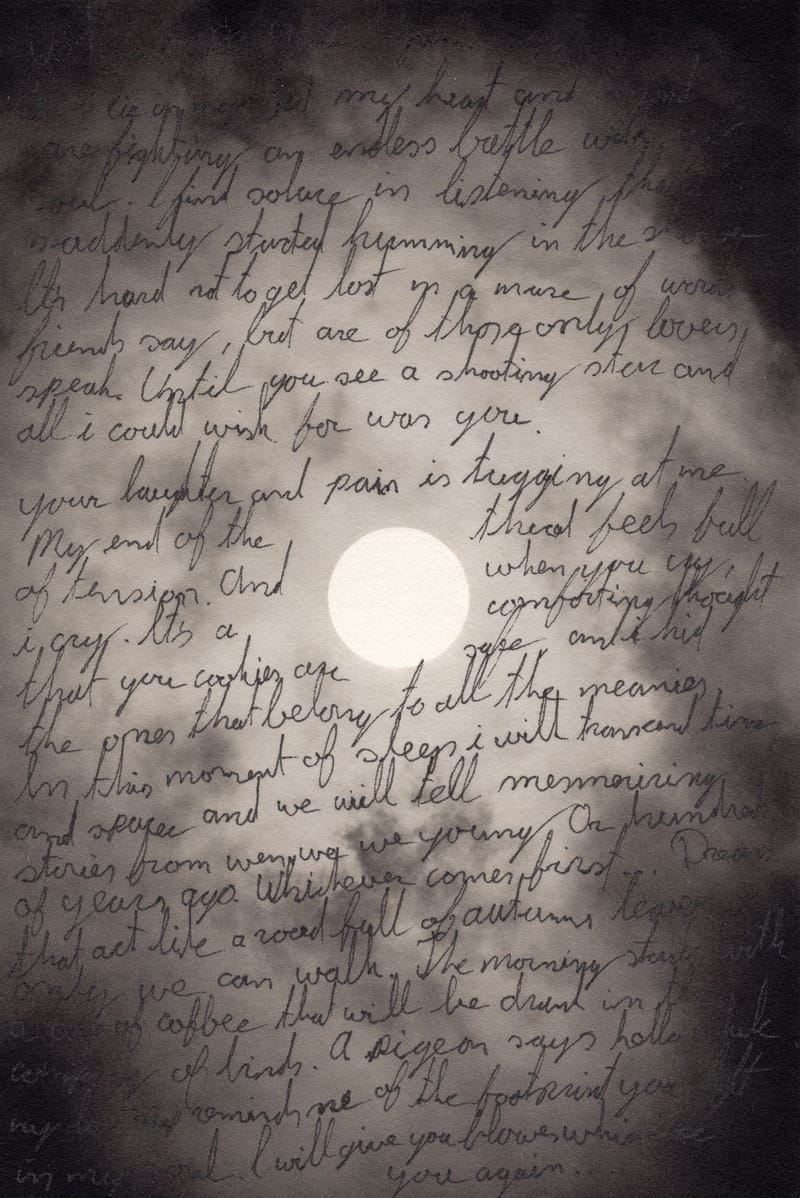 my heart and
are fighting an endless battle with
soul. I find solace in listening that
suddenly started humming in the
It's hard not to get lost in a maze of words
friends say, but are of those only lovers
speak. Until you see a shooting star and
all i could wish for was you.
your laughter and pain is tugging at me.
My end of the thread feels full
of tension. And when you cry,
i cry. It's a comforting thought
that you cookies are safe, and i hid
the ones that belong to all the meanies.
In this moment of sleep i will transcend time
and space and we will tell mesmerizing
stories from wen we we young Or hundreds
of years ago. Whichever comes first... Dreams
that act like a road full of autumn leaves
only we can walk. The morning starts with
a cup of coffee that will be drunk in the
company of birds. A pigeon says hello
my reminds me of the footprint you left
in my soul. I will give you
you again...